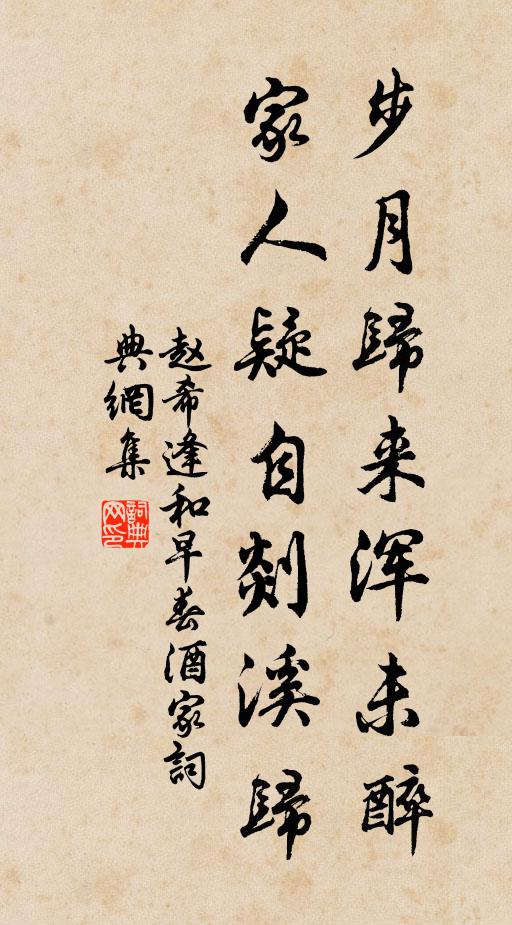 步月歸来浑未醉
家人疑自剡溪歸
赵希逢和早春酒家詞
典網集
詞典网印